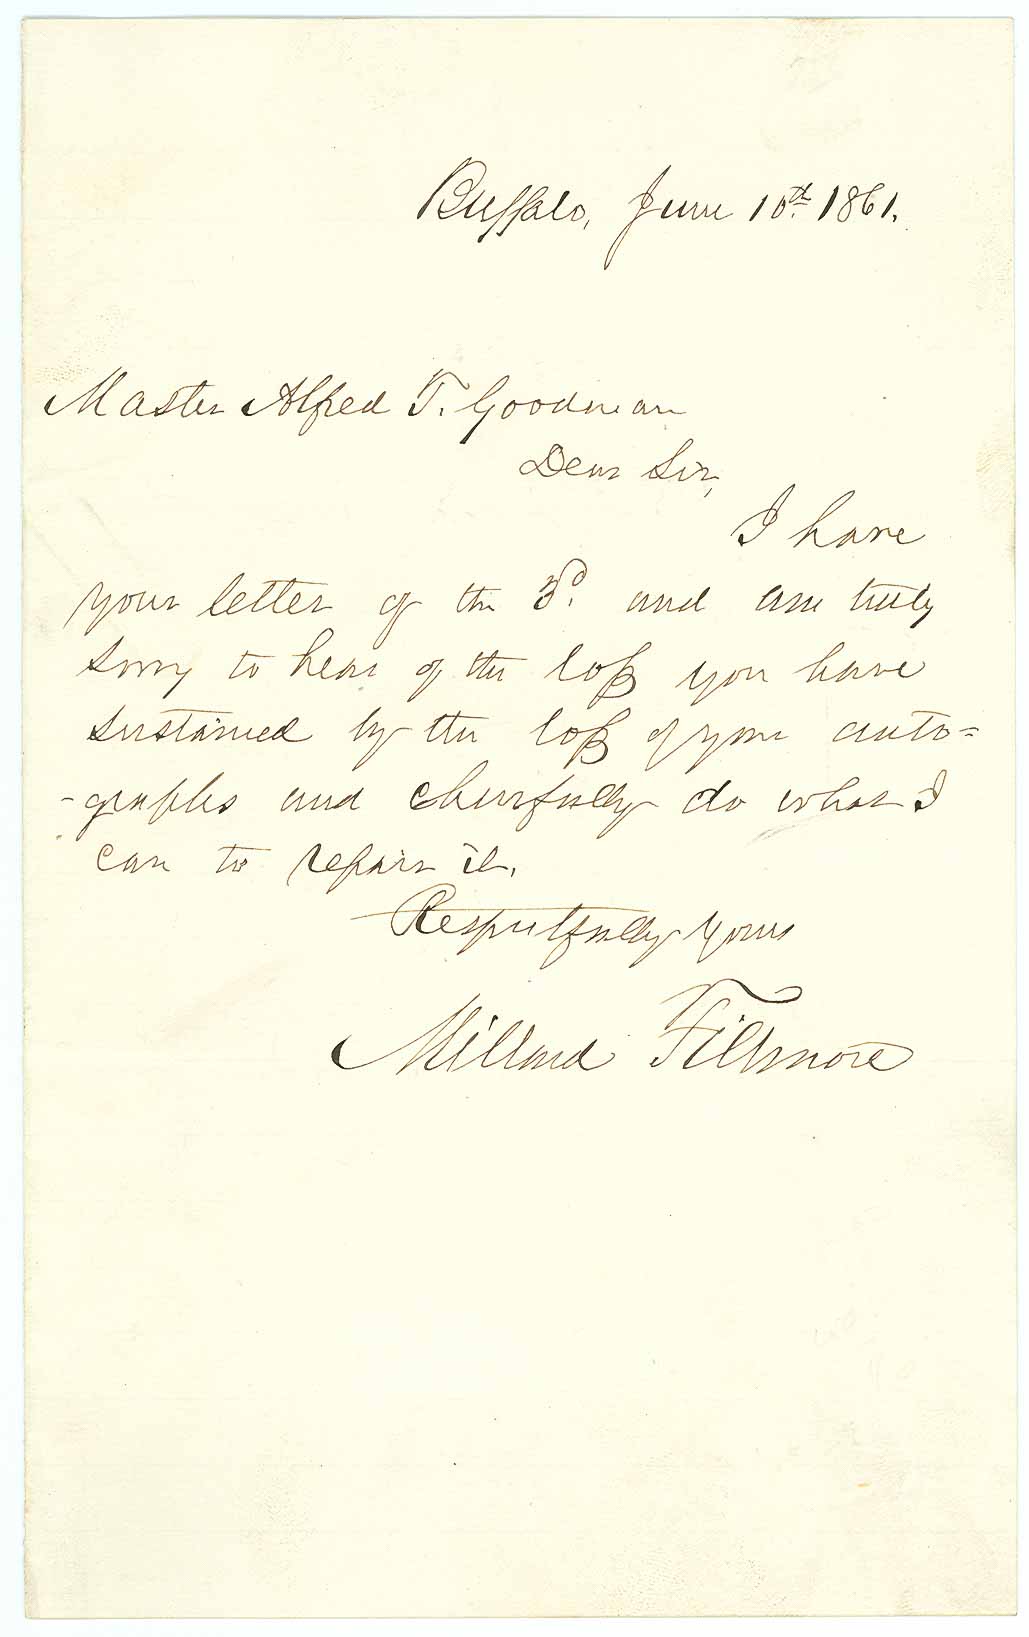 Buffalo, June 10th 1861.
Master Alfred T. Goodman
Dear Sir,
I have
your letter of the 3d. and am truly
sorry to hear of the loss you have
sustained by the loss of your auto=
-graphs and cheerfully do what I
can to repair it.
Respectfully yours
Millard Fillmore